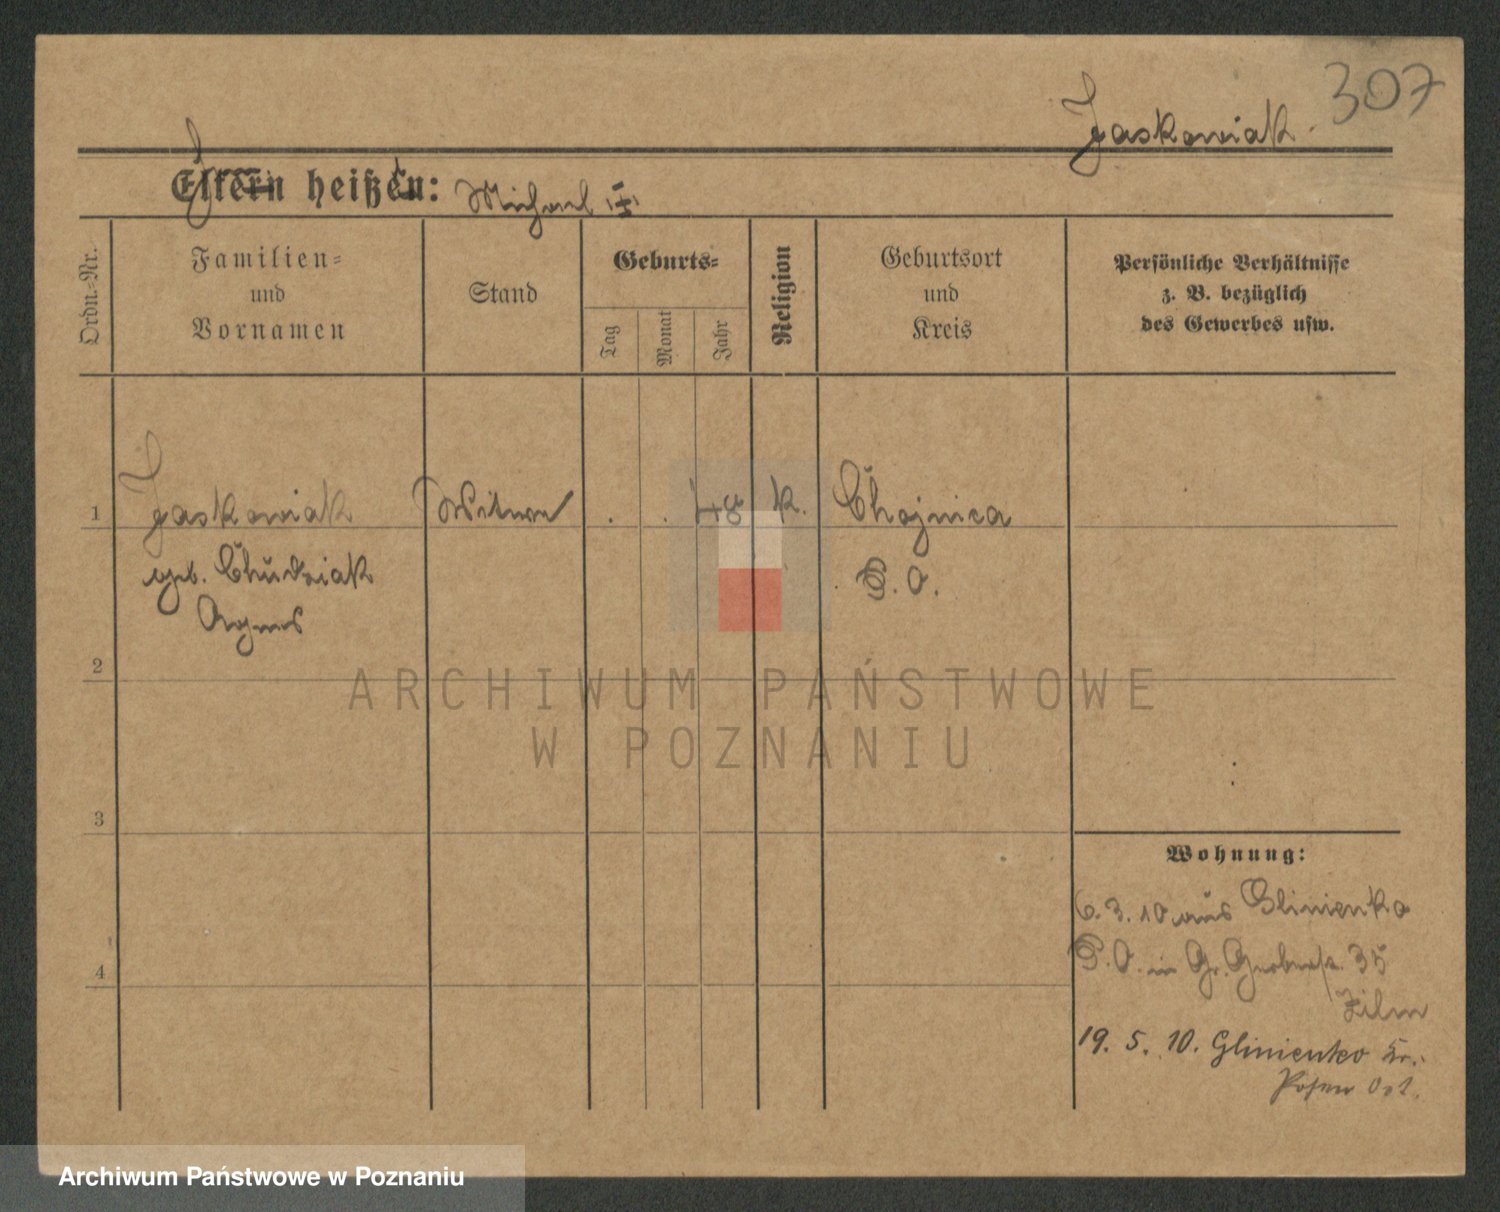 307
Jaskowiak.
Eltern heißen: Michael
Ordn.-Nr.
Familien-
und
Vornamen
Stand
Geburts-
Tag
Monat
Jahr
Religion
Geburtsort
und
Kreis
Persönliche Verhältnisse
z. B. bezüglich
des Gewerbes usw.
1 Jaskowiak Witwe . . 48 k. Chojnica
geb. Chudziak P. O.
Agnes
2
ARCHIWUM PAŃSTWOWE
W POZNANIU
3
Wohnung:
6. 3. 10 aus Glinienko
P. O. in Gr. Gerberstr. 35
4
19. 5. 10. Glinienko Kr.
Posen Ost.
Archiwum Państwowe w Poznaniu